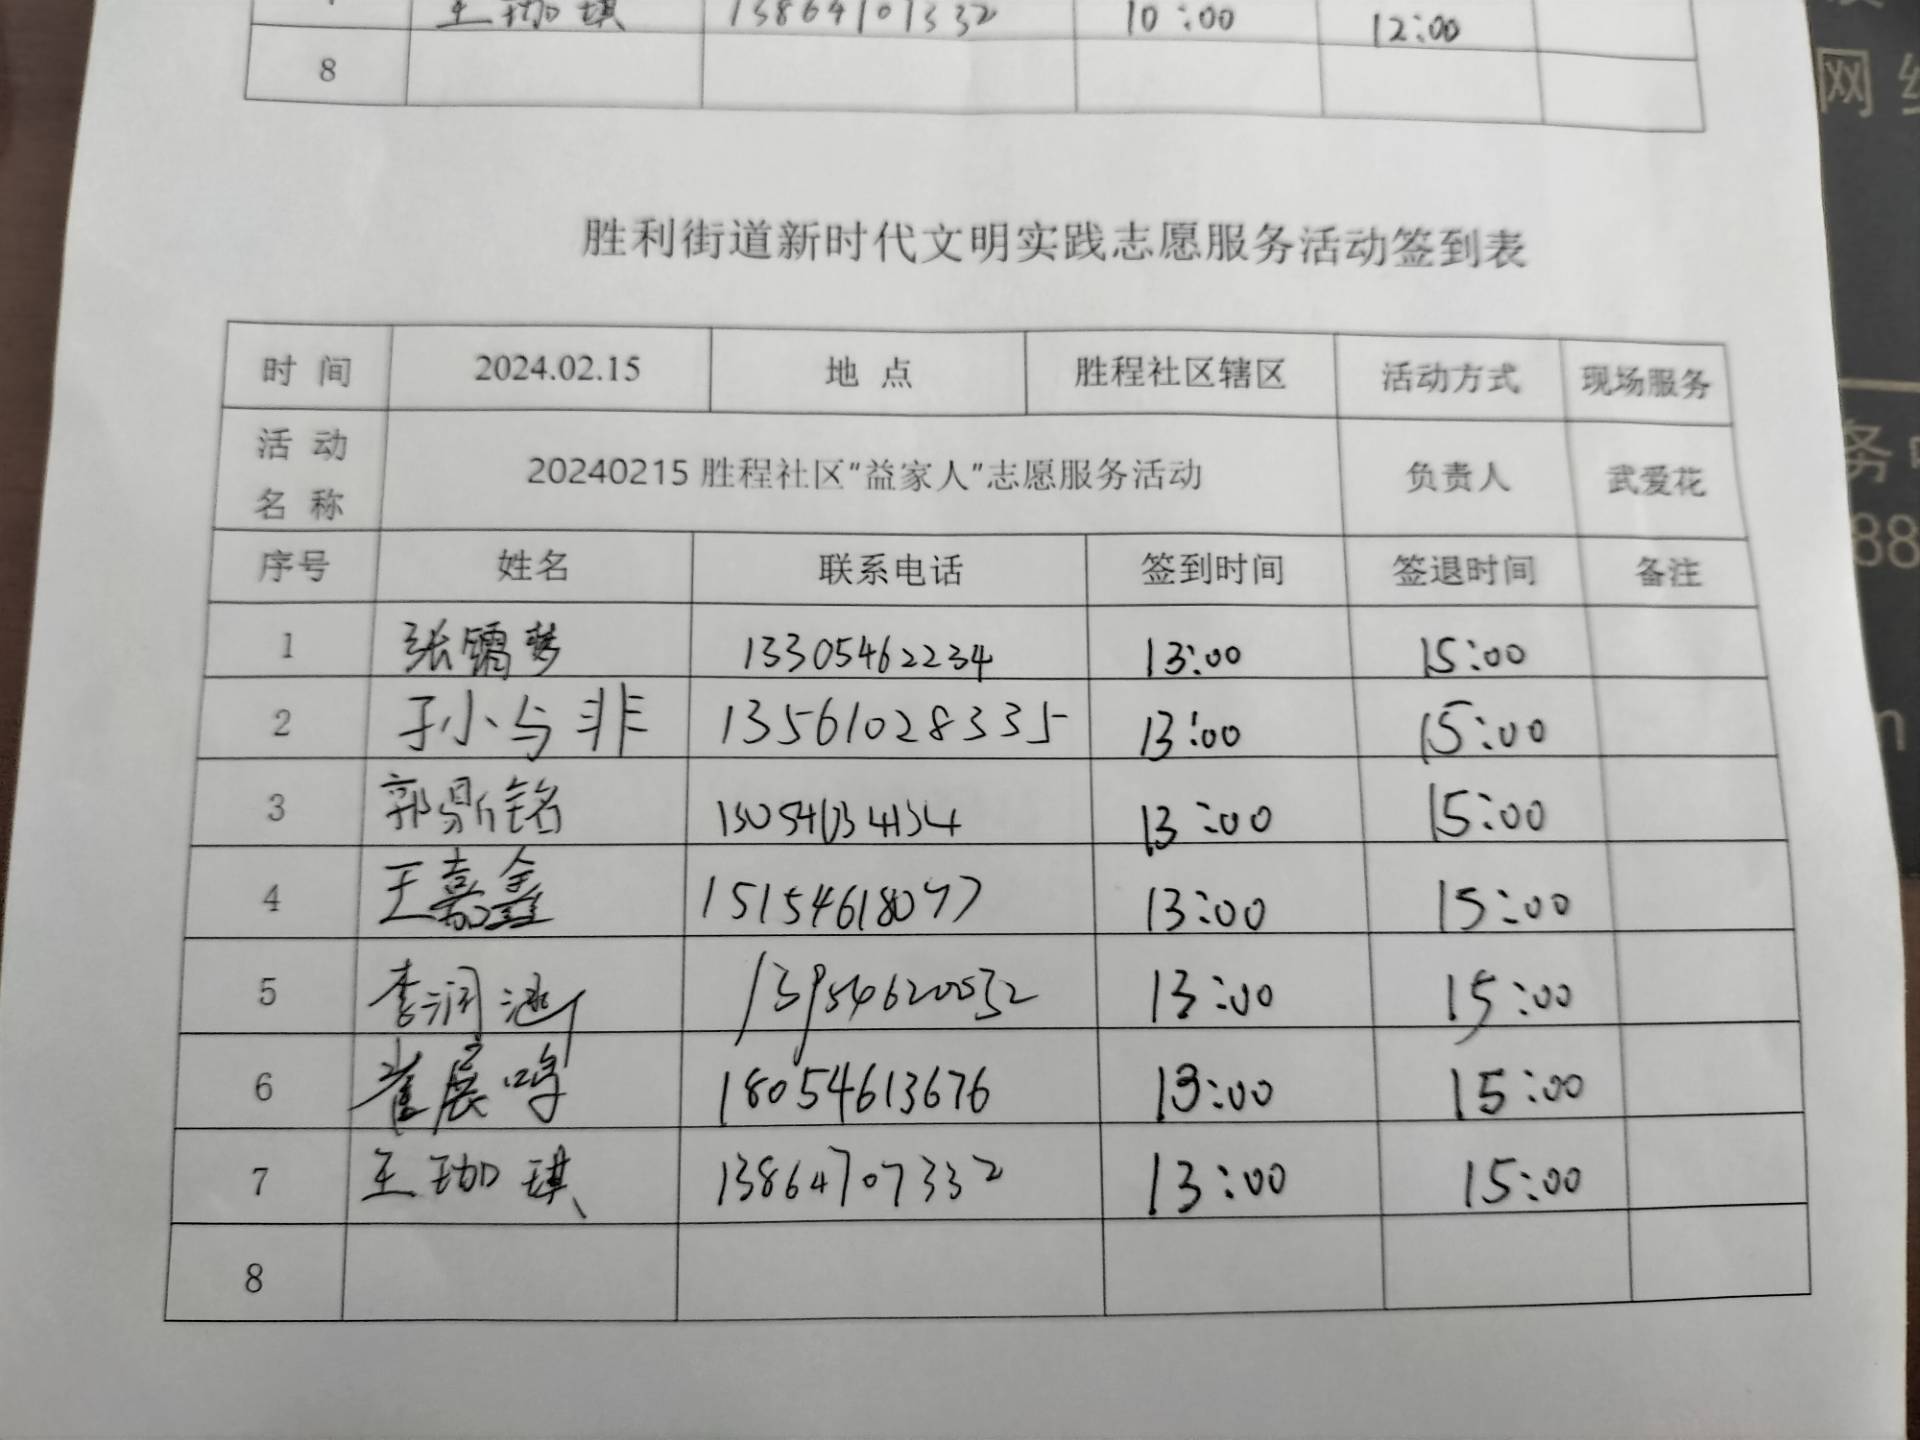 王珈琪 13864707332 10:00 12:00
8
胜利街道新时代文明实践志愿服务活动签到表
时 间 2024.02.15 地 点 胜程社区辖区 活动方式 现场服务
活 动
名 称 20240215 胜程社区"益家人"志愿服务活动 负责人 武爱花
序号 姓名 联系电话 签到时间 签退时间 备注
1 张镭梦 13305462234 13:00 15:00
2 于小与非 13561028335 13:00 15:00
3 郭鼎铭 13:00 15:00
4 王嘉鑫 15154618077 13:00 15:00
5 李润涵 13954620032 13:00 15:00
6 崔展鸣 18054613676 13:00 15:00
7 王珈琪 13864707332 13:00 15:00
8
网
务
88